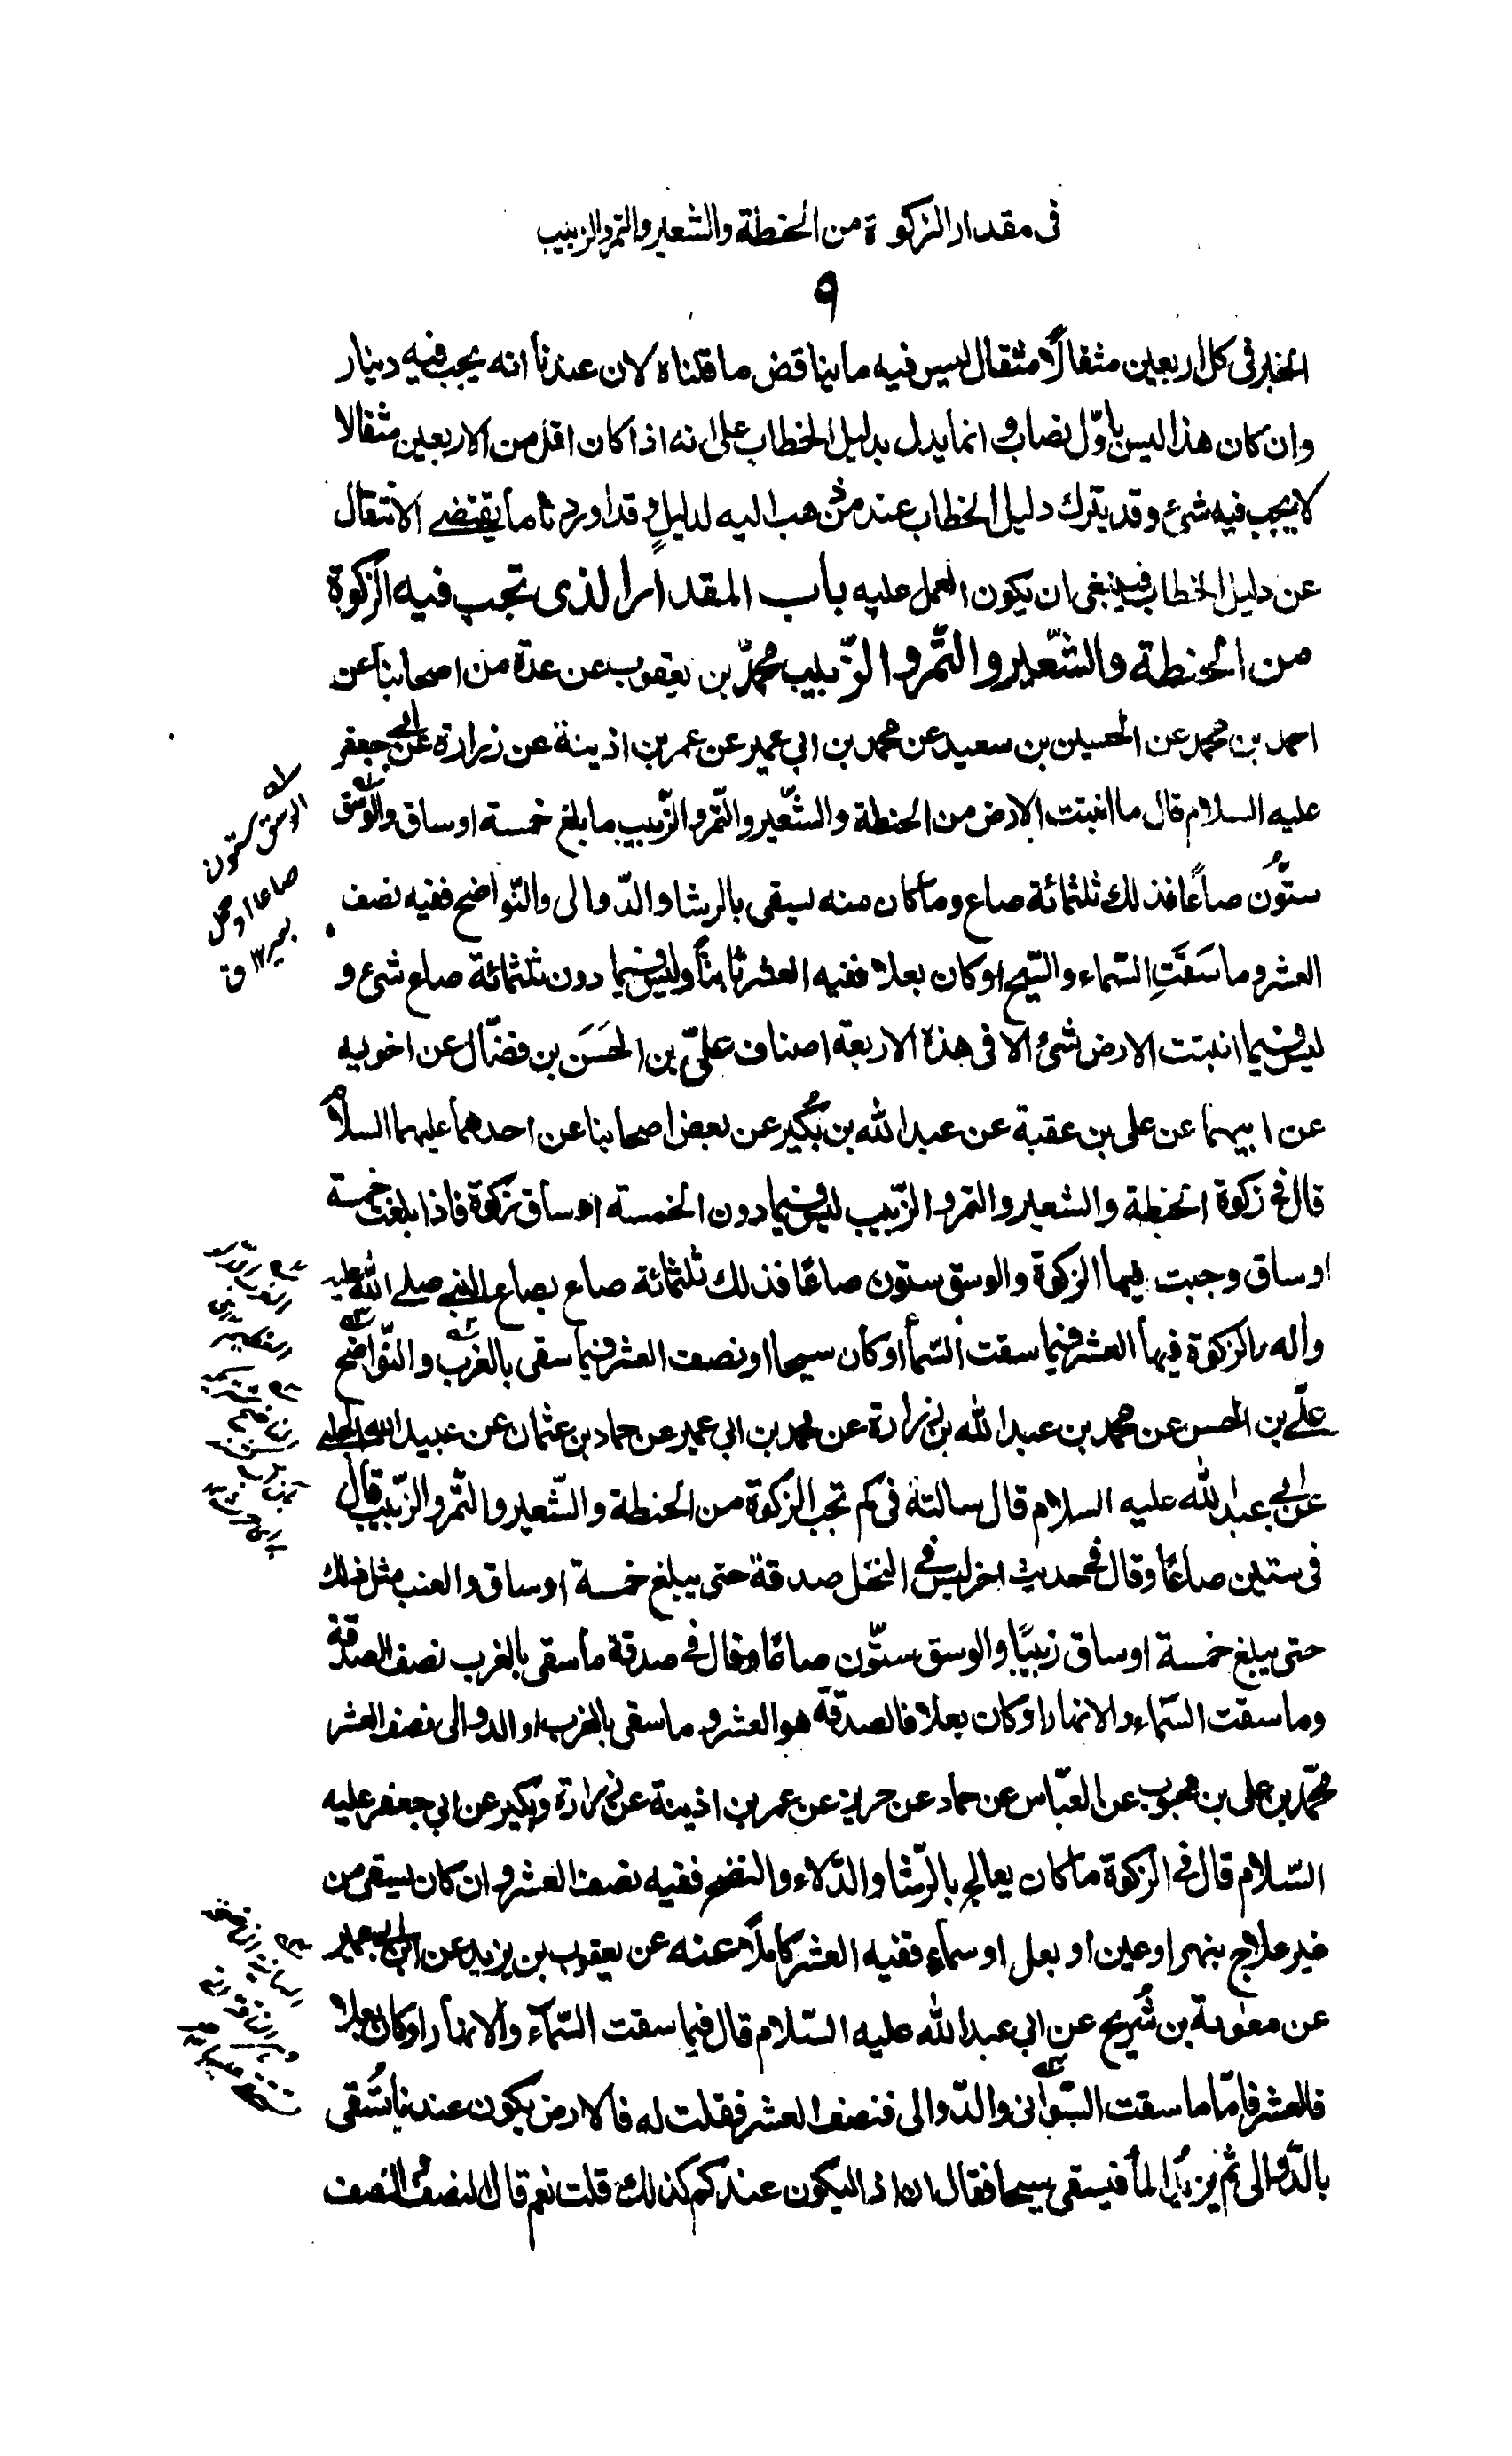 فى مقدار الزكوة من الحنطة والشعير والتمر والزبيب
٩
الخبر فى كل اربعين مثقالًا مثقال ليس فيه ما يناقض ما قلناه لان عندنا انه يجب فيه دينار
وان كان هذا ليس باوّل نصاب و انما يدل بدليل الخطاب على انه اذا كان اقل من الاربعين مثقالا
لا يجب فيه شىء و قد يترك دليل الخطاب عند من ذهب اليه لدليلٍ و قد اوردنا ما يقتضى الانتقال
عن دليل الخطاب فينبغى ان يكون العمل عليه باب المقدار الذى تجب فيه الزكوة
من الحنطة والشّعير والتّمر والزّبيب محمّد بن يعقوب عن عدة من اصحابنا عن
احمد بن محمد عن الحسين بن سعيد عن محمد بن ابى عمير عن عمر بن اذينة عن زرارة عن ابى جعفر
عليه السلام قال ما انبتت الارض من الحنطة والشّعير والتّمر والزّبيب ما بلغ خمسة اوساق والوسق
ستّون صاعًا فذلك ثلثمائة صاع وما كان منه يسقى بالرشا والدّوالى والنّواضح ففيه نصف
العشر وما سَقَتِ السّماء والسّيح او كان بعلا ففيه العشر تامّا وليس فيما دون ثلثمائة صاع شىء و
ليس فيما انبتت الارض شىء الا فى هذه الاربعة اصناف علىّ بن الحَسَن بن فضّال عن اخويه
عن ابيهما عن على بن عقبة عن عبد الله بن بُكير عن بعض اصحابنا عن احدهما عليهما السلام
قال فى زكوة الحنطة والشعير والتمر والزّبيب ليس فيما دون الخمسة اوساق زكوة فاذا بلغت خمسة
اوساق وجبت فيها الزكوة والوسق ستون صاعًا فذلك ثلثمائة صاع بصاع النبى صلى الله عليه
وآله والزكوة فيها العشر فيما سقت السّماء او كان سيحا او نصف العشر فيما سقى بالغرب والنّواضح
علىّ بن الحسن عن محمد بن عبد الله بن زرارة عن محمد بن ابى عمير عن حماد بن عثمان عن عبيد الله الحلبى
عن ابى عبد الله عليه السلام قال سالته فى كم تجب الزكوة من الحنطة والشّعير والتّمر والزّبيب قال
فى ستين صاعًا وقال فى حديث اخر ليس فى النخل صدقة حتى يبلغ خمسة اوساق والعنب مثل ذلك
حتى يبلغ خمسة اوساق زبيبًا والوسق ستّون صاعًا وقال فى صدقة ما سقى بالغرب نصف الصدقة
وما سقت السّماء والانهار او كان بعلا فالصدقة هو العشر و ما سقى بالغرب او الدوالى نصف العشر
محمّد بن على بن محبوب عن العبّاس عن حماد عن حريز عن عمر بن اذينة عن زرارة وبكير عن ابى جعفر عليه
السّلام قال فى الزكوة ما كان يعالج بالرّشا والدّلاء والنضح ففيه نصف العشر و ان كان يسقى من
غير علاج بنهر او عين او بعل او سماء ففيه العشر كاملًا عنه عن يعقوب بن يزيد عن ابن ابى عمير
عن معوية بن شُريح عن ابى عبد الله عليه السّلام قال فيما سقت السّماء والانهار او كان بعلا
فالعشر فامّا ما سقت السّوانى والدّوالى فنصف العشر فقلت له فالارض يكون عندنا تُسقى
بالدّوالى ثم يزيد الماء فيسقى سيحا فقال ان ذا ليكون عندكم كذلك قلت نعم قال النصف والنصف
الوسق ستون
صاعا او حمل
بعير ق